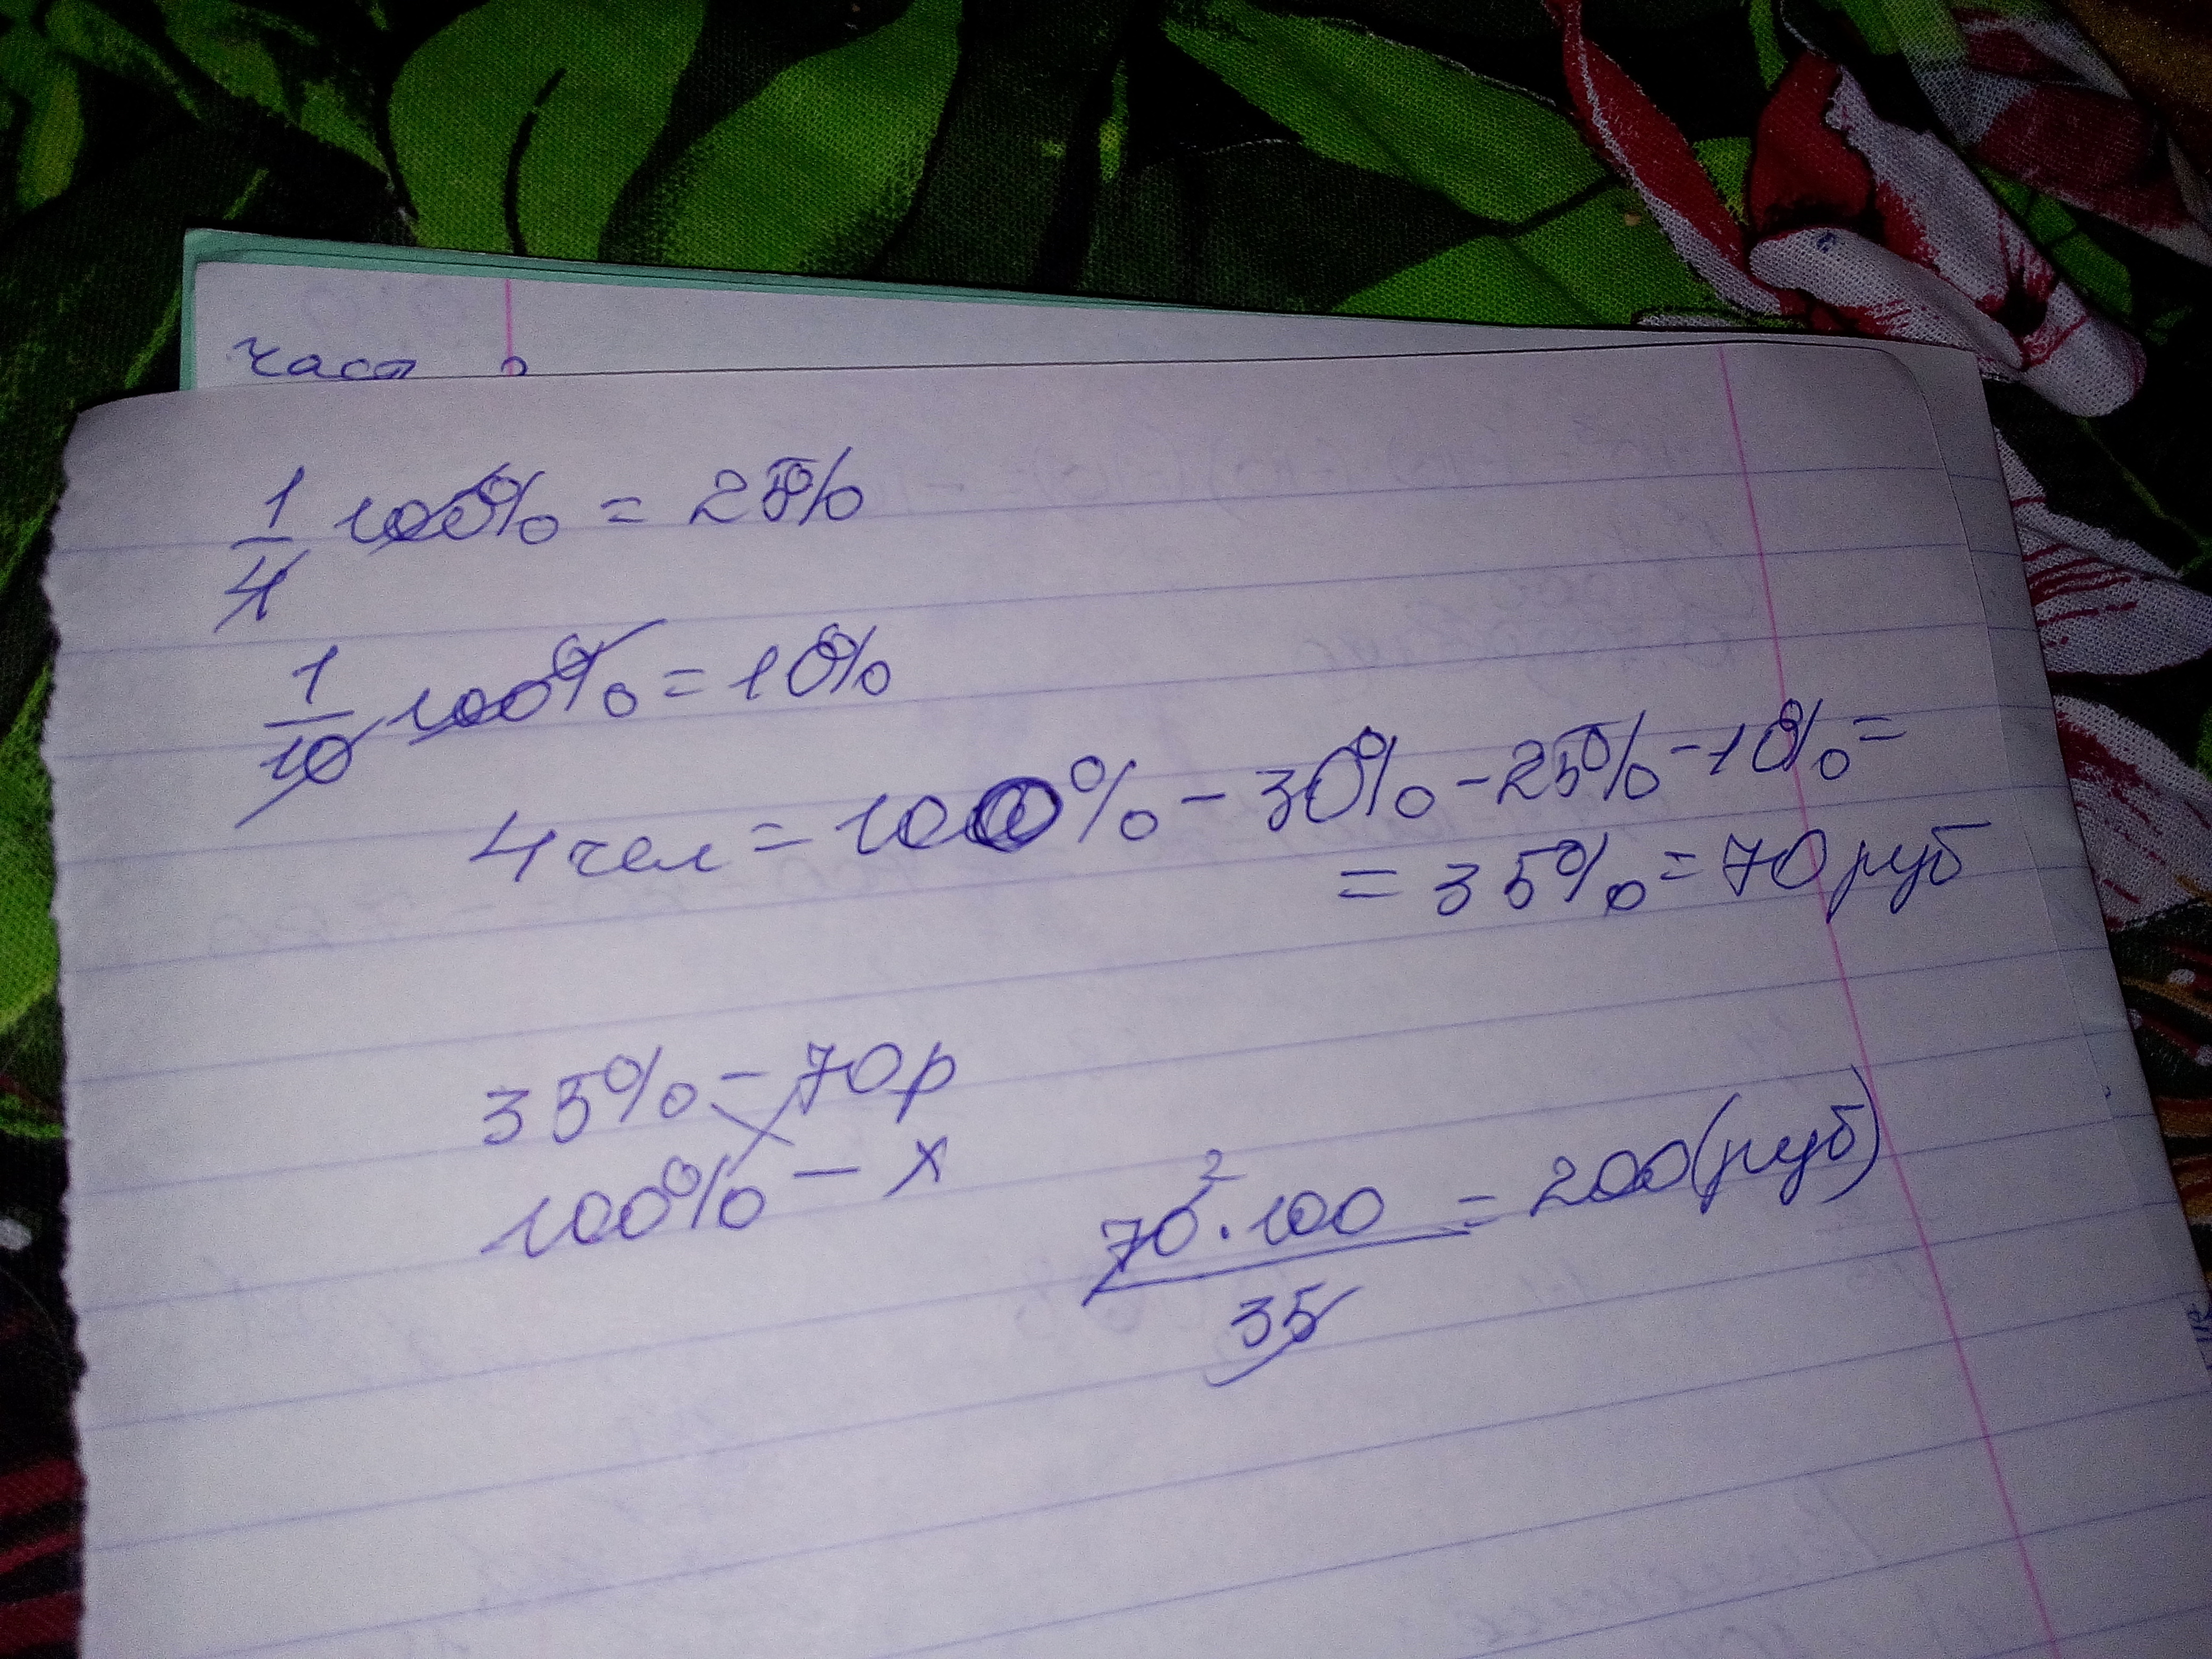 част
1/4 100% = 25%
1/10 100% = 10%
4 чел = 100% - 30% - 25% - 10% =
= 35% = 70 руб
35% - 70 р
100% - x
2
70 · 100 / 35 = 200 (руб)